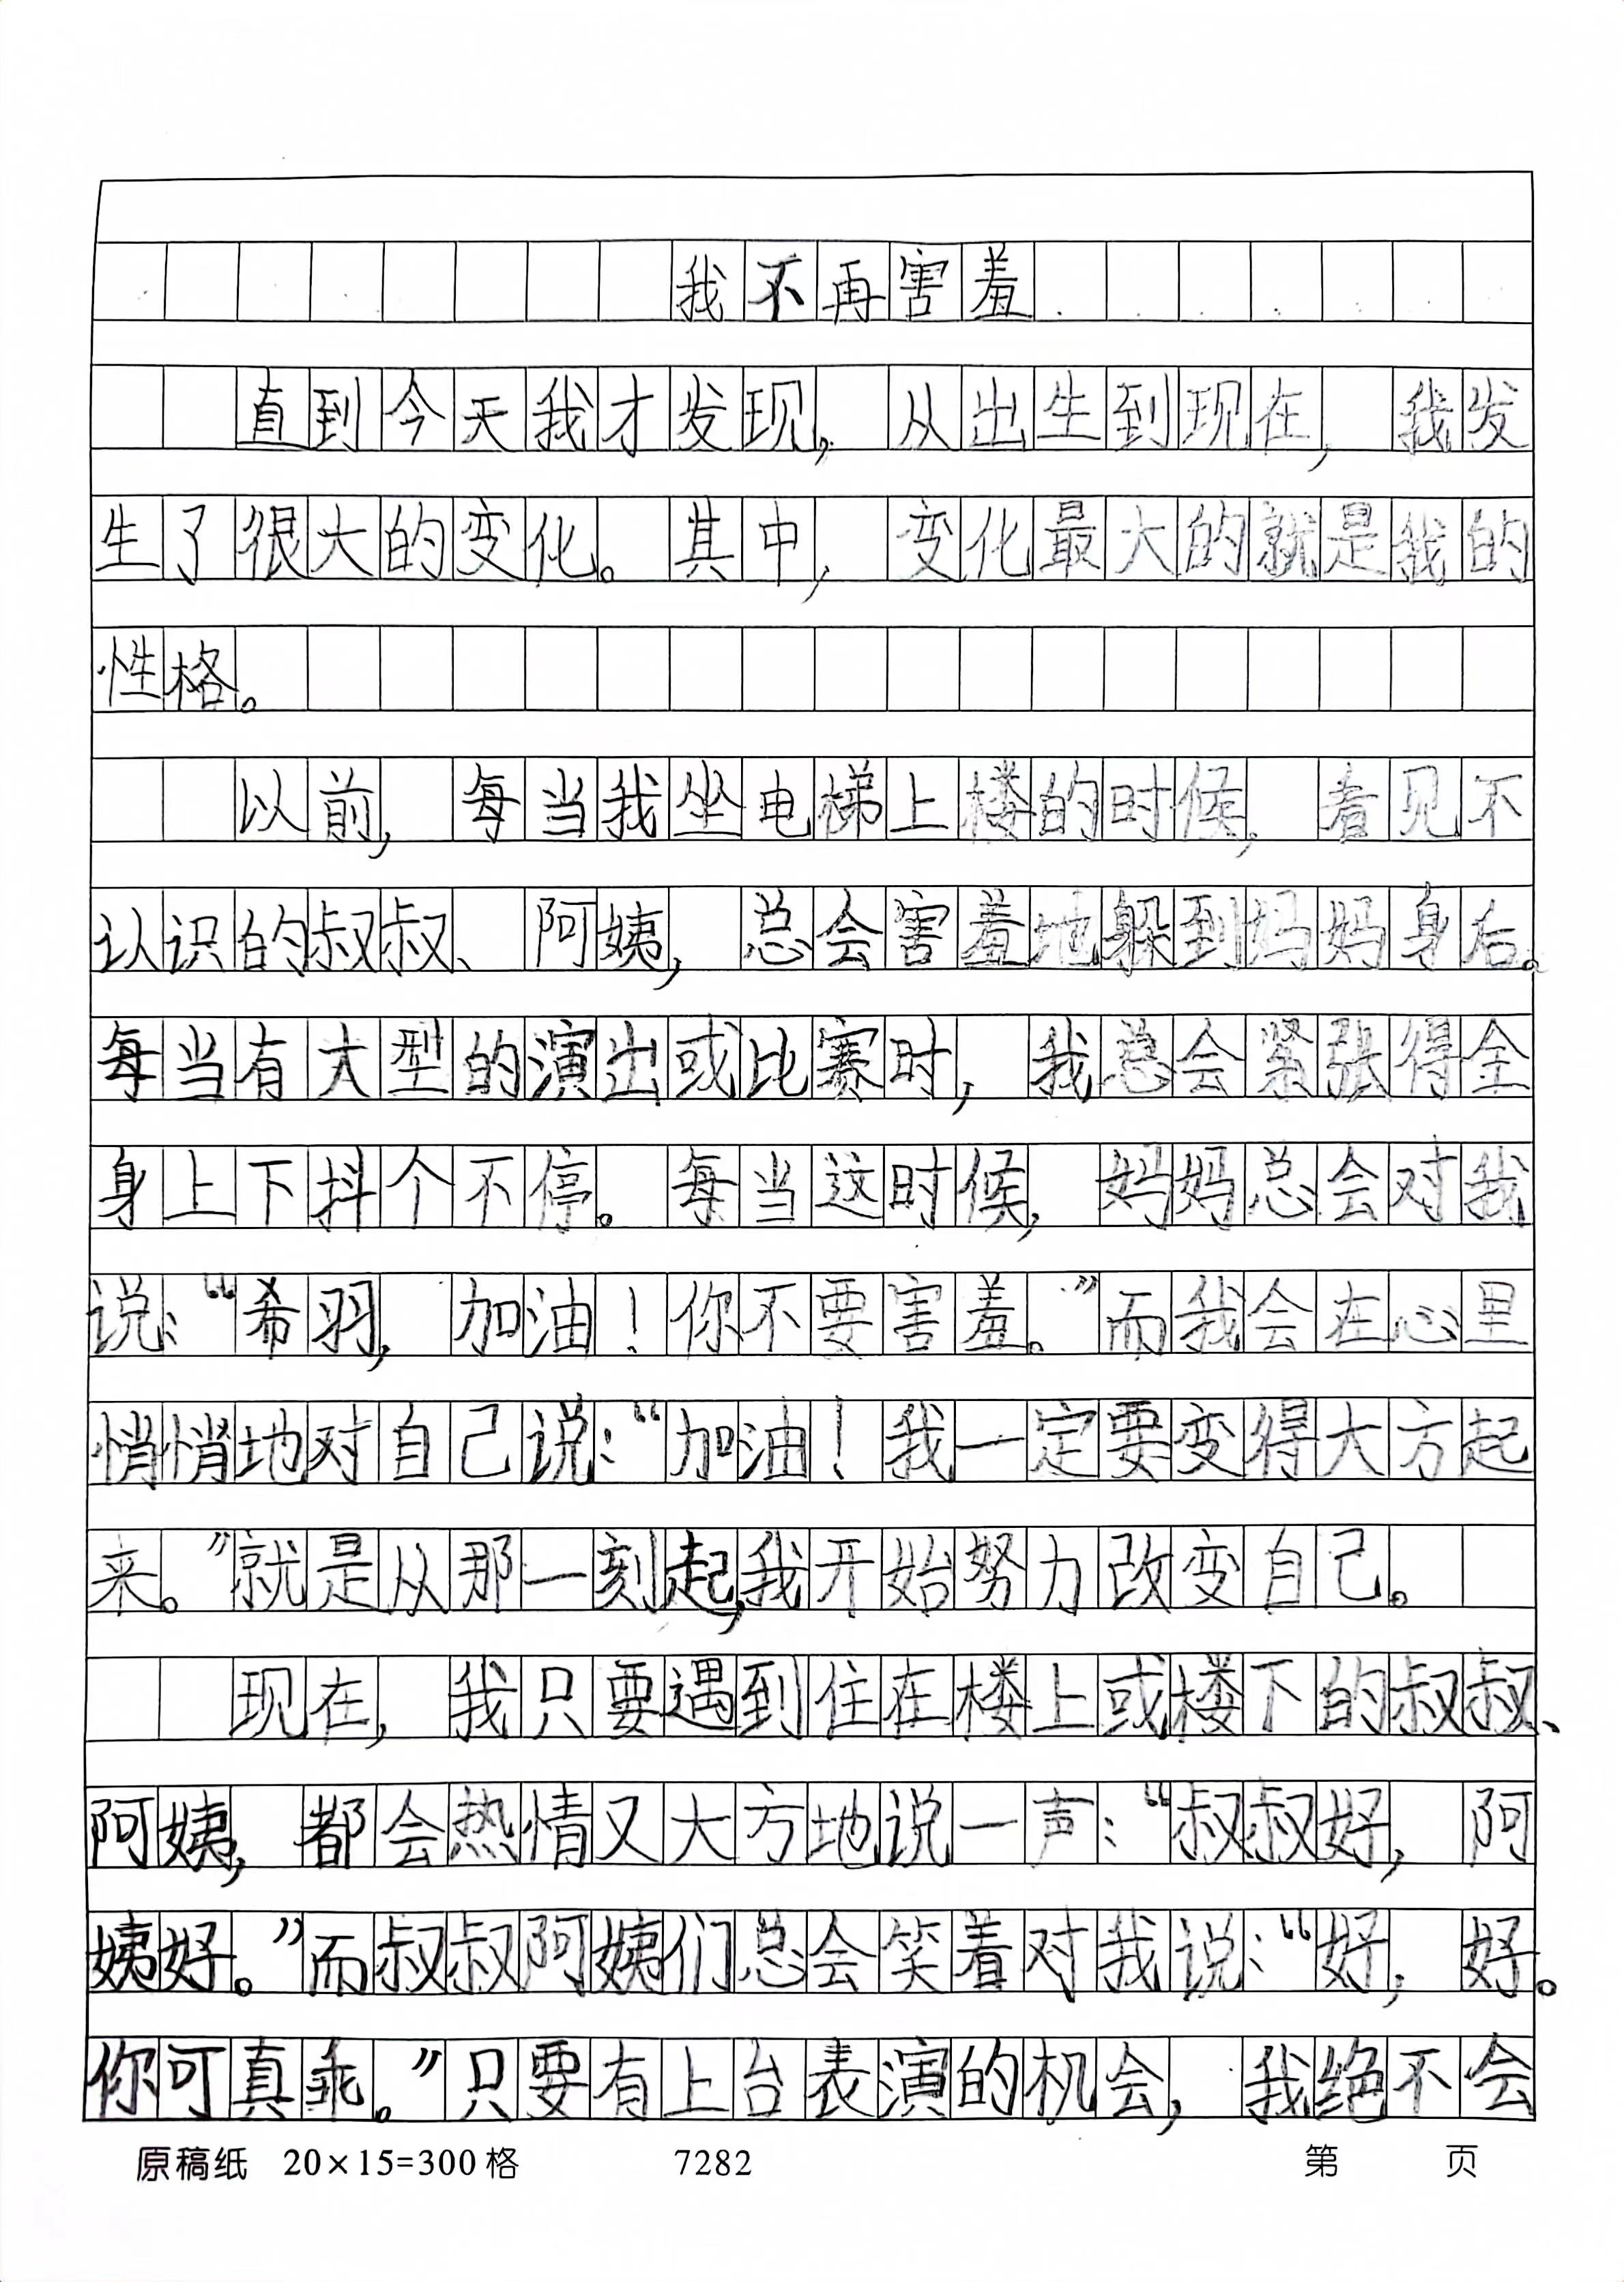 我不再害羞
直到今天我才发现，从出生到现在，我发
生了很大的变化。其中，变化最大的就是我的
性格。
以前，每当我坐电梯上楼的时候，看见不
认识的叔叔、阿姨，总会害羞地躲到妈妈身后。
每当有大型的演出或比赛时，我总会紧张得全
身上下抖个不停。每当这时候，妈妈总会对我
说：“希羽，加油！你不要害羞。”而我会在心里
悄悄地对自己说：“加油！我一定要变得大方起
来。”就是从那一刻起，我开始努力改变自己。
现在，我只要遇到住在楼上或楼下的叔叔、
阿姨，都会热情又大方地说一声：“叔叔好，阿
姨好。”而叔叔阿姨们总会笑着对我说：“好，好。
你可真乖。”只要有上台表演的机会，我绝不会
原稿纸 20×15=300格 7282 第 页